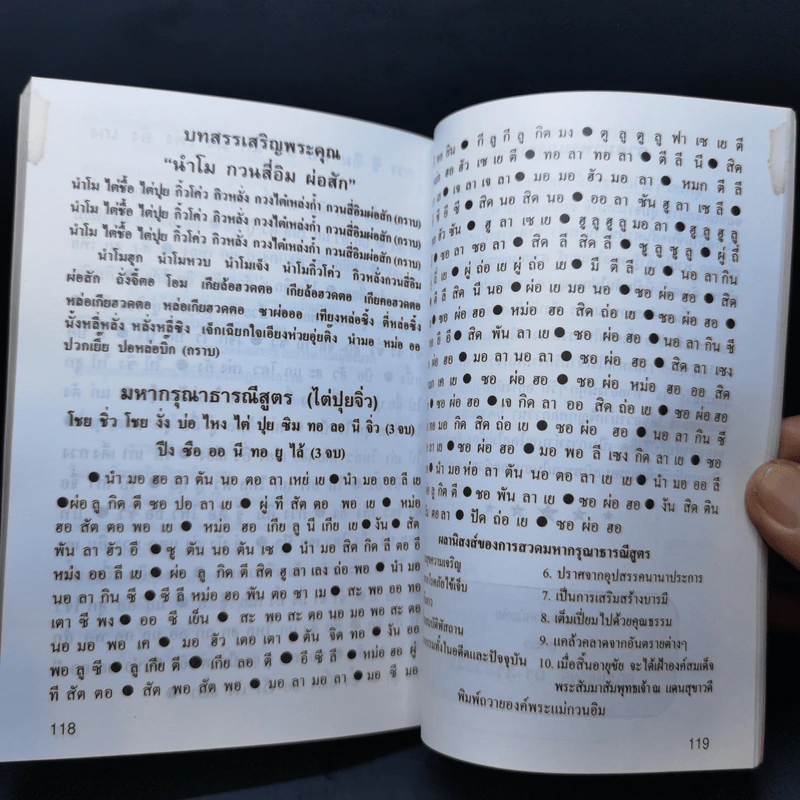 บทสรรเสริญพระคุณ
"นำโม กวนสี่อิม ผ่อสัก"
นำโม ไต่ซื้อ ไต่ปุย กิ้วโค่ว กิวหลั่ง กวงไต๋เหล่งก้ำ กวนสี่อิมผ่อสัก (กราบ)
นำโม ไต่ซื้อ ไต่ปุย กิ้วโค่ว กิวหลั่ง กวงไต๋เหล่งก้ำ กวนสี่อิมผ่อสัก (กราบ)
นำโม ไต่ซื้อ ไต่ปุย กิ้วโค่ว กิวหลั่ง กวงไต๋เหล่งก้ำ กวนสี่อิมผ่อสัก (กราบ)
นำโมฮุก นำโมหวบ นำโมเจ็ง นำโมกิ้วโค่ว กิวหลั่งกวนสี่อิม
ผ่อสัก ถั่งจี้ตอ โอม เกียล้อฮวดตอ เกียล้อฮวดตอ เกียคอฮวดตอ
หล่อเกียฮวดตอ หล่อเกียฮวดตอ ซาผ่อออ เทียงหล่อซิ้ง ตี่หล่อซิ้ง
นั้งหลี่หลั่ง หลั่งหลี่ซิง เจ็กเฉียกใจเอียงห่วยอุ่ยติ๊ง นำมอ หม่อ ออ
ปวกเยี๊ย ปอหล่อบิ๊ก (กราบ)
มหากรุณาธารณีสูตร (ไต่ปุยจิ่ว)
โชย ชิ่ว โชย งั่ง บ่อ ไหง ไต่ ปุย ซิม ทอ ลอ นี จิ่ว (3 จบ)
ปึง ซือ ออ นี ทอ ยู ไล้ (3 จบ)
● นำ มอ ฮอ ลา ตัน นอ ตอ ลา เหย่ เย ● นำ มอ ออ ลี เย
●ผ่อ ลู กิด ตี ซอ ปอ ลา เย ● ผู่ ที สัด ตอ พอ เย ● หม่อ
ฮอ สัด ตอ พอ เย ● หม่อ ฮอ เกีย ลู นี เกีย เย ● งัน ● สัด
พัน ลา ฮัว อี ● ซู ตัน นอ ตัน เซ ● นำ มอ สิด กิด ลี ตอ อี
หม่ง ออ ลี เย ● ผ่อ ลู กิด ตี สิด ฮู ลา เลง ถ่อ พอ ● นำ มอ
นอ ลา กิน ซี ● ซี ลี หม่อ ฮอ พัน ตอ ซา เม ● สะ พอ ออ ทอ
เตา ซี พง ● ออ ซี เย็น ● สะ พอ สะ ตอ นอ มอ พอ สะ ตอ
นอ มอ พอ เค ● มอ ฮัว เตอ เตา ● ตัน จิด ทอ ● งัน ออ
พอ ลู ซี ● ลู เกีย ตี ● เกีย ลอ ตี ● อี ซี ลี ● หม่อ ฮอ ผู่
ที สัด ตอ ● สัด พอ สัด พอ ● มอ ลา มอ ลา ● มอ ซี มอ
118
กิน ● กี ลู กี ลู กิด มง ● ตู ลู ตู ลู ฟา เซ เย ตี
ฮอ ฮัว เซ เย ตี ● ทอ ลา ทอ ลา ● ตี ลี นี ● สิด
เย ● เจ ลา เจ ลา ● มอ มอ ฮัว มอ ลา ● หมก ตี ลี
อี ซี ● สิด นอ สิด นอ ● ออ ลา ซัน ฮู ลา เซ ลี ●
ฮัว ซัน ● ฮู ลา เซ เย ● ฮู ลู ฮู ลู มอ ลา ● ฮู ลู ฮู ลู
ลา ซอ ลา ● สิด ลี สิด ลี ● ซู ลู ซู ลู ● ผู่ ถี่
● ผู่ ถ่อ เย ผู่ ถ่อ เย ● มี ตี ลี เย ● นอ ลา กิน
ตี ลี สิด นี นอ ● ผ่อ เย มอ นอ ● ซอ ผ่อ ฮอ ● สิด
● ซอ ผ่อ ฮอ ● หม่อ ฮอ สิด ถ่อ เย ● ซอ ผ่อ ฮอ ●
อี อี ● สิด พัน ลา เย ● ซอ ผ่อ ฮอ ● นอ ลา กิน ซี
ผ่อ ฮอ ● มอ ลา นอ ลา ● ซอ ผ่อ ฮอ ● สิด ลา เซง
เย ● ซอ ผ่อ ฮอ ● ซอ ผ่อ หม่อ ฮอ ออ สิด
ผ่อ ฮอ ● เจ กิด ลา ออ สิด ถ่อ เย ● ซอ ผ่อ ฮอ ●
มอ กิด สิด ถ่อ เย ● ซอ ผ่อ ฮอ ● นอ ลา กิน ซี
เย ● ซอ ผ่อ ฮอ ● มอ พอ ลี เซง กิด ลา เย ● ซอ ผ่อ ฮอ
● นำ มอ ห่อ ลา ตัน นอ ตอ ลา เย เย ● นำ มอ ออ ลี
ลู กิด ตี ● ซอ พัน ลา เย ● ซอ ผ่อ ฮอ ● งัน สิด ติน
ตอ ลา ● ปัด ถ่อ เย ● ซอ ผ่อ ฮอ
ผลานิสงส์ของการสวดมหากรุณาธารณีสูตร
สุขความเจริญ 6. ปราศจากอุปสรรคนานาประการ
โรคภัยไข้เจ็บ 7. เป็นการเสริมสร้างบารมี
8. เต็มเปี่ยมไปด้วยคุณธรรม
9. แคล้วคลาดจากอันตรายต่างๆ
ทั้งในอดีตและปัจจุบัน 10. เมื่อสิ้นอายุขัย จะได้เฝ้าองค์สมเด็จ
พระสัมมาสัมพุทธเจ้า ณ แดนสุขาวดี
พิมพ์ถวายองค์พระแม่กวนอิม
119